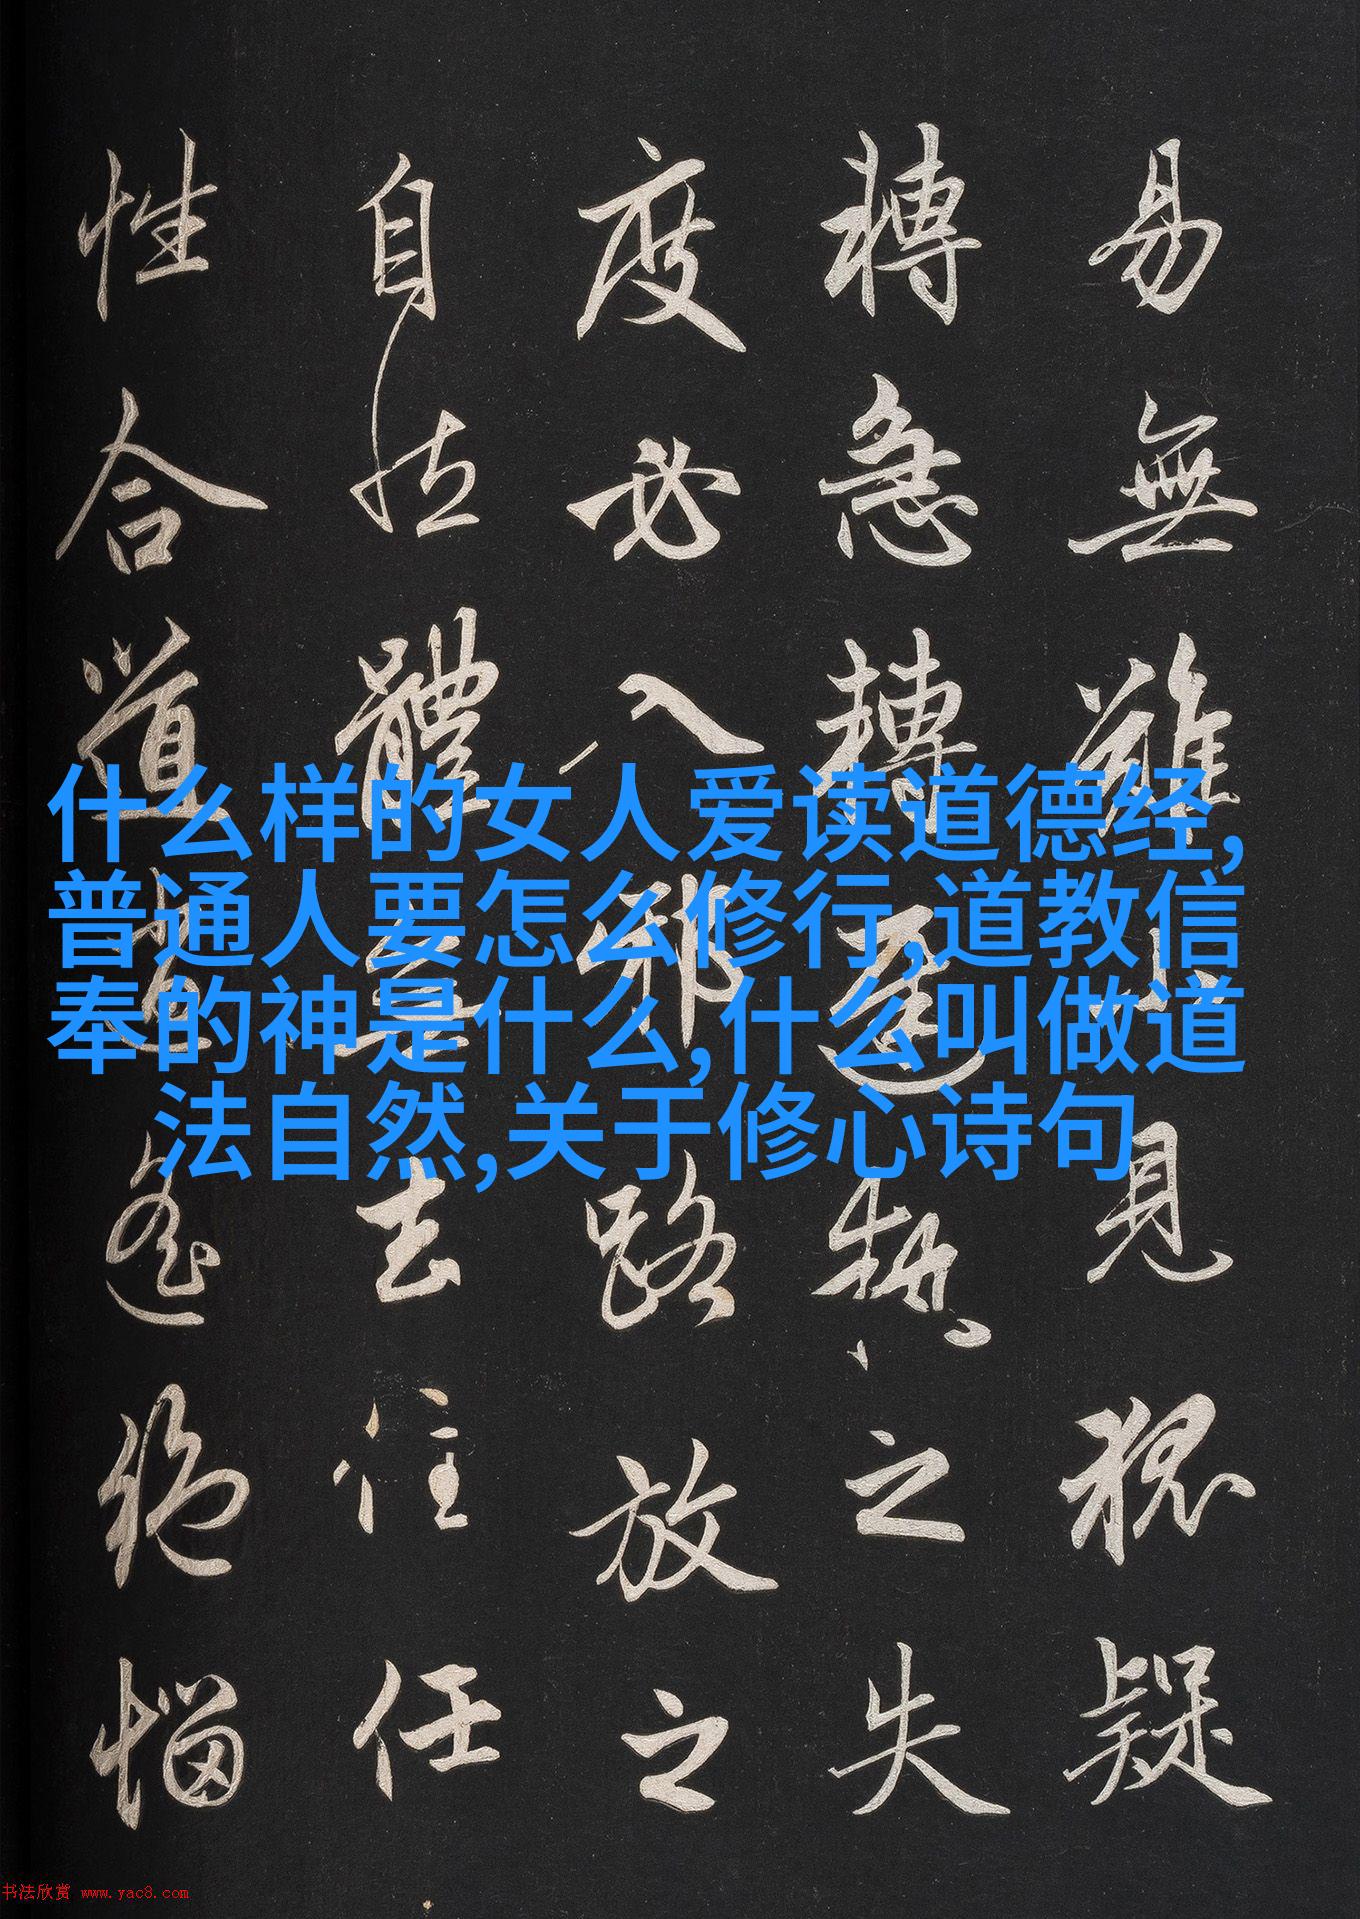 易無難小見狐疑
轉急轉遲執之失
度必入邪路放之
自然體無去住任
性合道逍遙絕惱
什么样的女人爱读道德经,
普通人要怎么修行,道教信
奉的神是什么,什么叫做道
法自然,关于修心诗句
书法欣赏 www.yac8.com